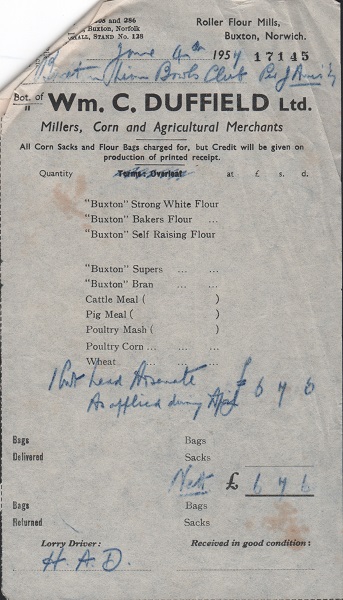 286 and 286
Buxton, Norfolk
HALL, STAND No. 128
Roller Flour Mills,
Buxton, Norwich.
June 4th 1954 17145
Bowls Club
Bot. of Wm. C. DUFFIELD Ltd.
Millers, Corn and Agricultural Merchants
All Corn Sacks and Flour Bags charged for, but Credit will be given on
production of printed receipt.
Quantity Terms: Overleaf at £ s. d.
"Buxton" Strong White Flour
"Buxton" Bakers Flour ...
"Buxton" Self Raising Flour
"Buxton" Supers ... ...
"Buxton" Bran ... ...
Cattle Meal ( )
Pig Meal ( )
Poultry Mash ( )
Poultry Corn ... ...
Wheat ... ...
1 Cwt Lead Arsenate £ 6 7 6
As applied during April
Bags Bags
Delivered Sacks
Nett £ 6 7 6
Bags Bags
Returned Sacks
Lorry Driver: Received in good condition:
H. A. D.